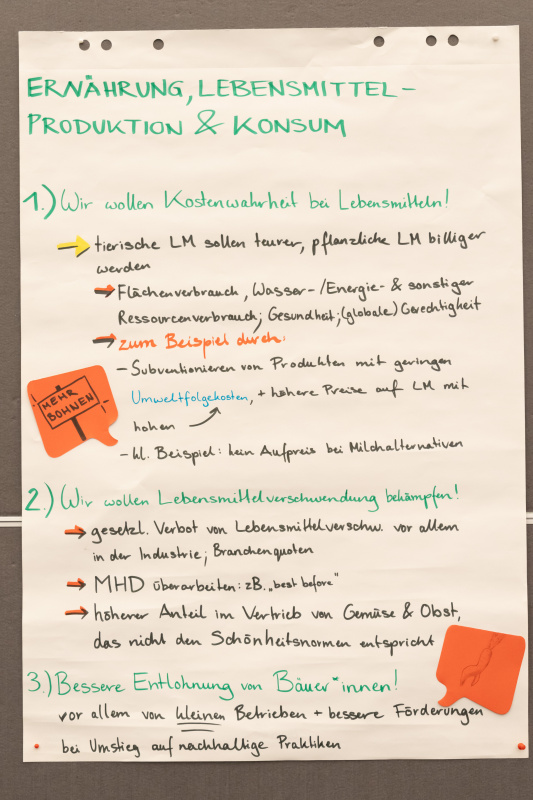 ERNÄHRUNG, LEBENSMITTEL-
PRODUKTION & KONSUM
1.) Wir wollen Kostenwahrheit bei Lebensmitteln!
tierische LM sollen teurer, pflanzliche LM billiger
werden
Flächenverbrauch, Wasser-/Energie- & sonstiger
Ressourcenverbrauch; Gesundheit; (globale) Gerechtigkeit
zum Beispiel durch:
- Subventionieren von Produkten mit geringen
Umweltfolgekosten, + höhere Preise auf LM mit
hohen
- kl. Beispiel: kein Aufpreis bei Milchalternativen
MEHR
BOHNEN
2.) Wir wollen Lebensmittelverschwendung bekämpfen!
gesetzl. Verbot von Lebensmittelverschw. vor allem
in der Industrie; Branchenquoten
MHD überarbeiten: zB. „best before"
höherer Anteil im Vertrieb von Gemüse & Obst,
das nicht den Schönheitsnormen entspricht
3.) Bessere Entlohnung von Bäuer*innen!
vor allem von kleinen Betrieben + bessere Förderungen
bei Umstieg auf nachhaltige Praktiken